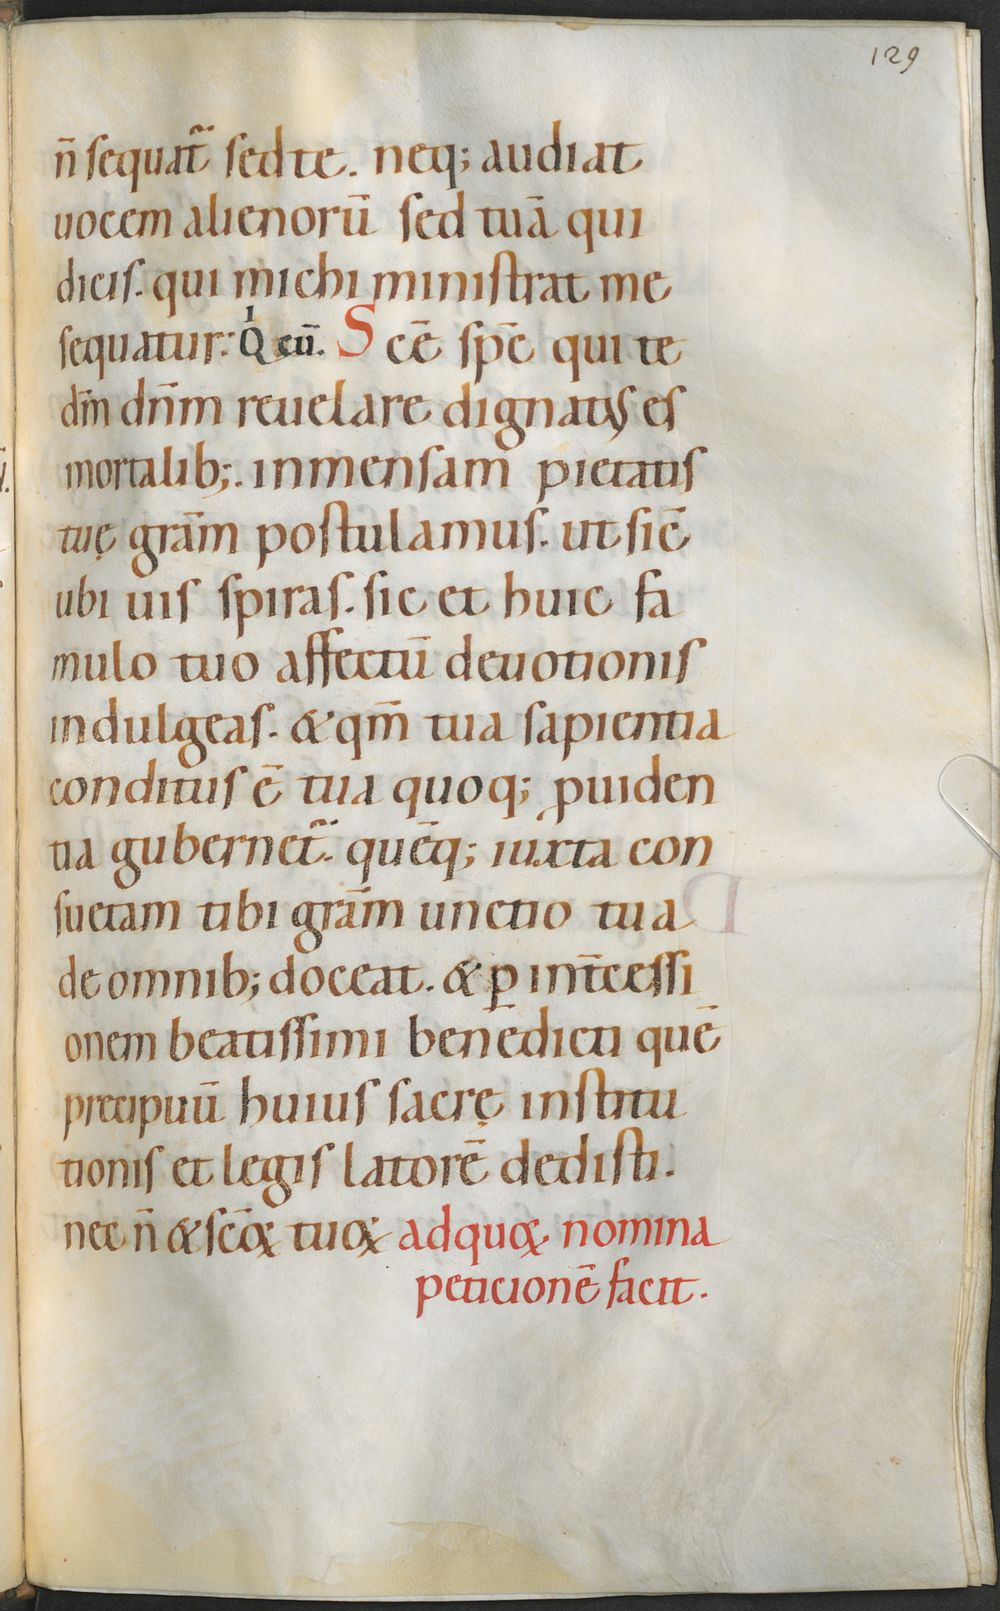 129
n̄ sequat᷑ sed te. neq; audiat
uocem alienorū sed tuā qui
dicis. qui michi ministrat me
sequatur: Qͥ cū. Scē sp̄c qui te
dm̄ dn̄m reuelare dignatus es
mortalib;. inmensam pietatis
tuę grām postulamus. ut sic̄
ubi uis spiras. sic et huic fa
mulo tuo affectū deuotionis
indulgeas. & qm̄ tua sapientia
conditus ē tua quoq; ꝓuiden
tia gubernet᷑. quēq; iuxta con
suetam tibi grām unctio tua
de omnib; doceat. & ꝑ int̄cessi
onem beatissimi benedicti quē
precipuū huius sacrę institu
tionis et legis latorē dedisti.
nec n̄ & scōꝝ tuoꝝ ad quoꝝ nomina
peticionē facit.